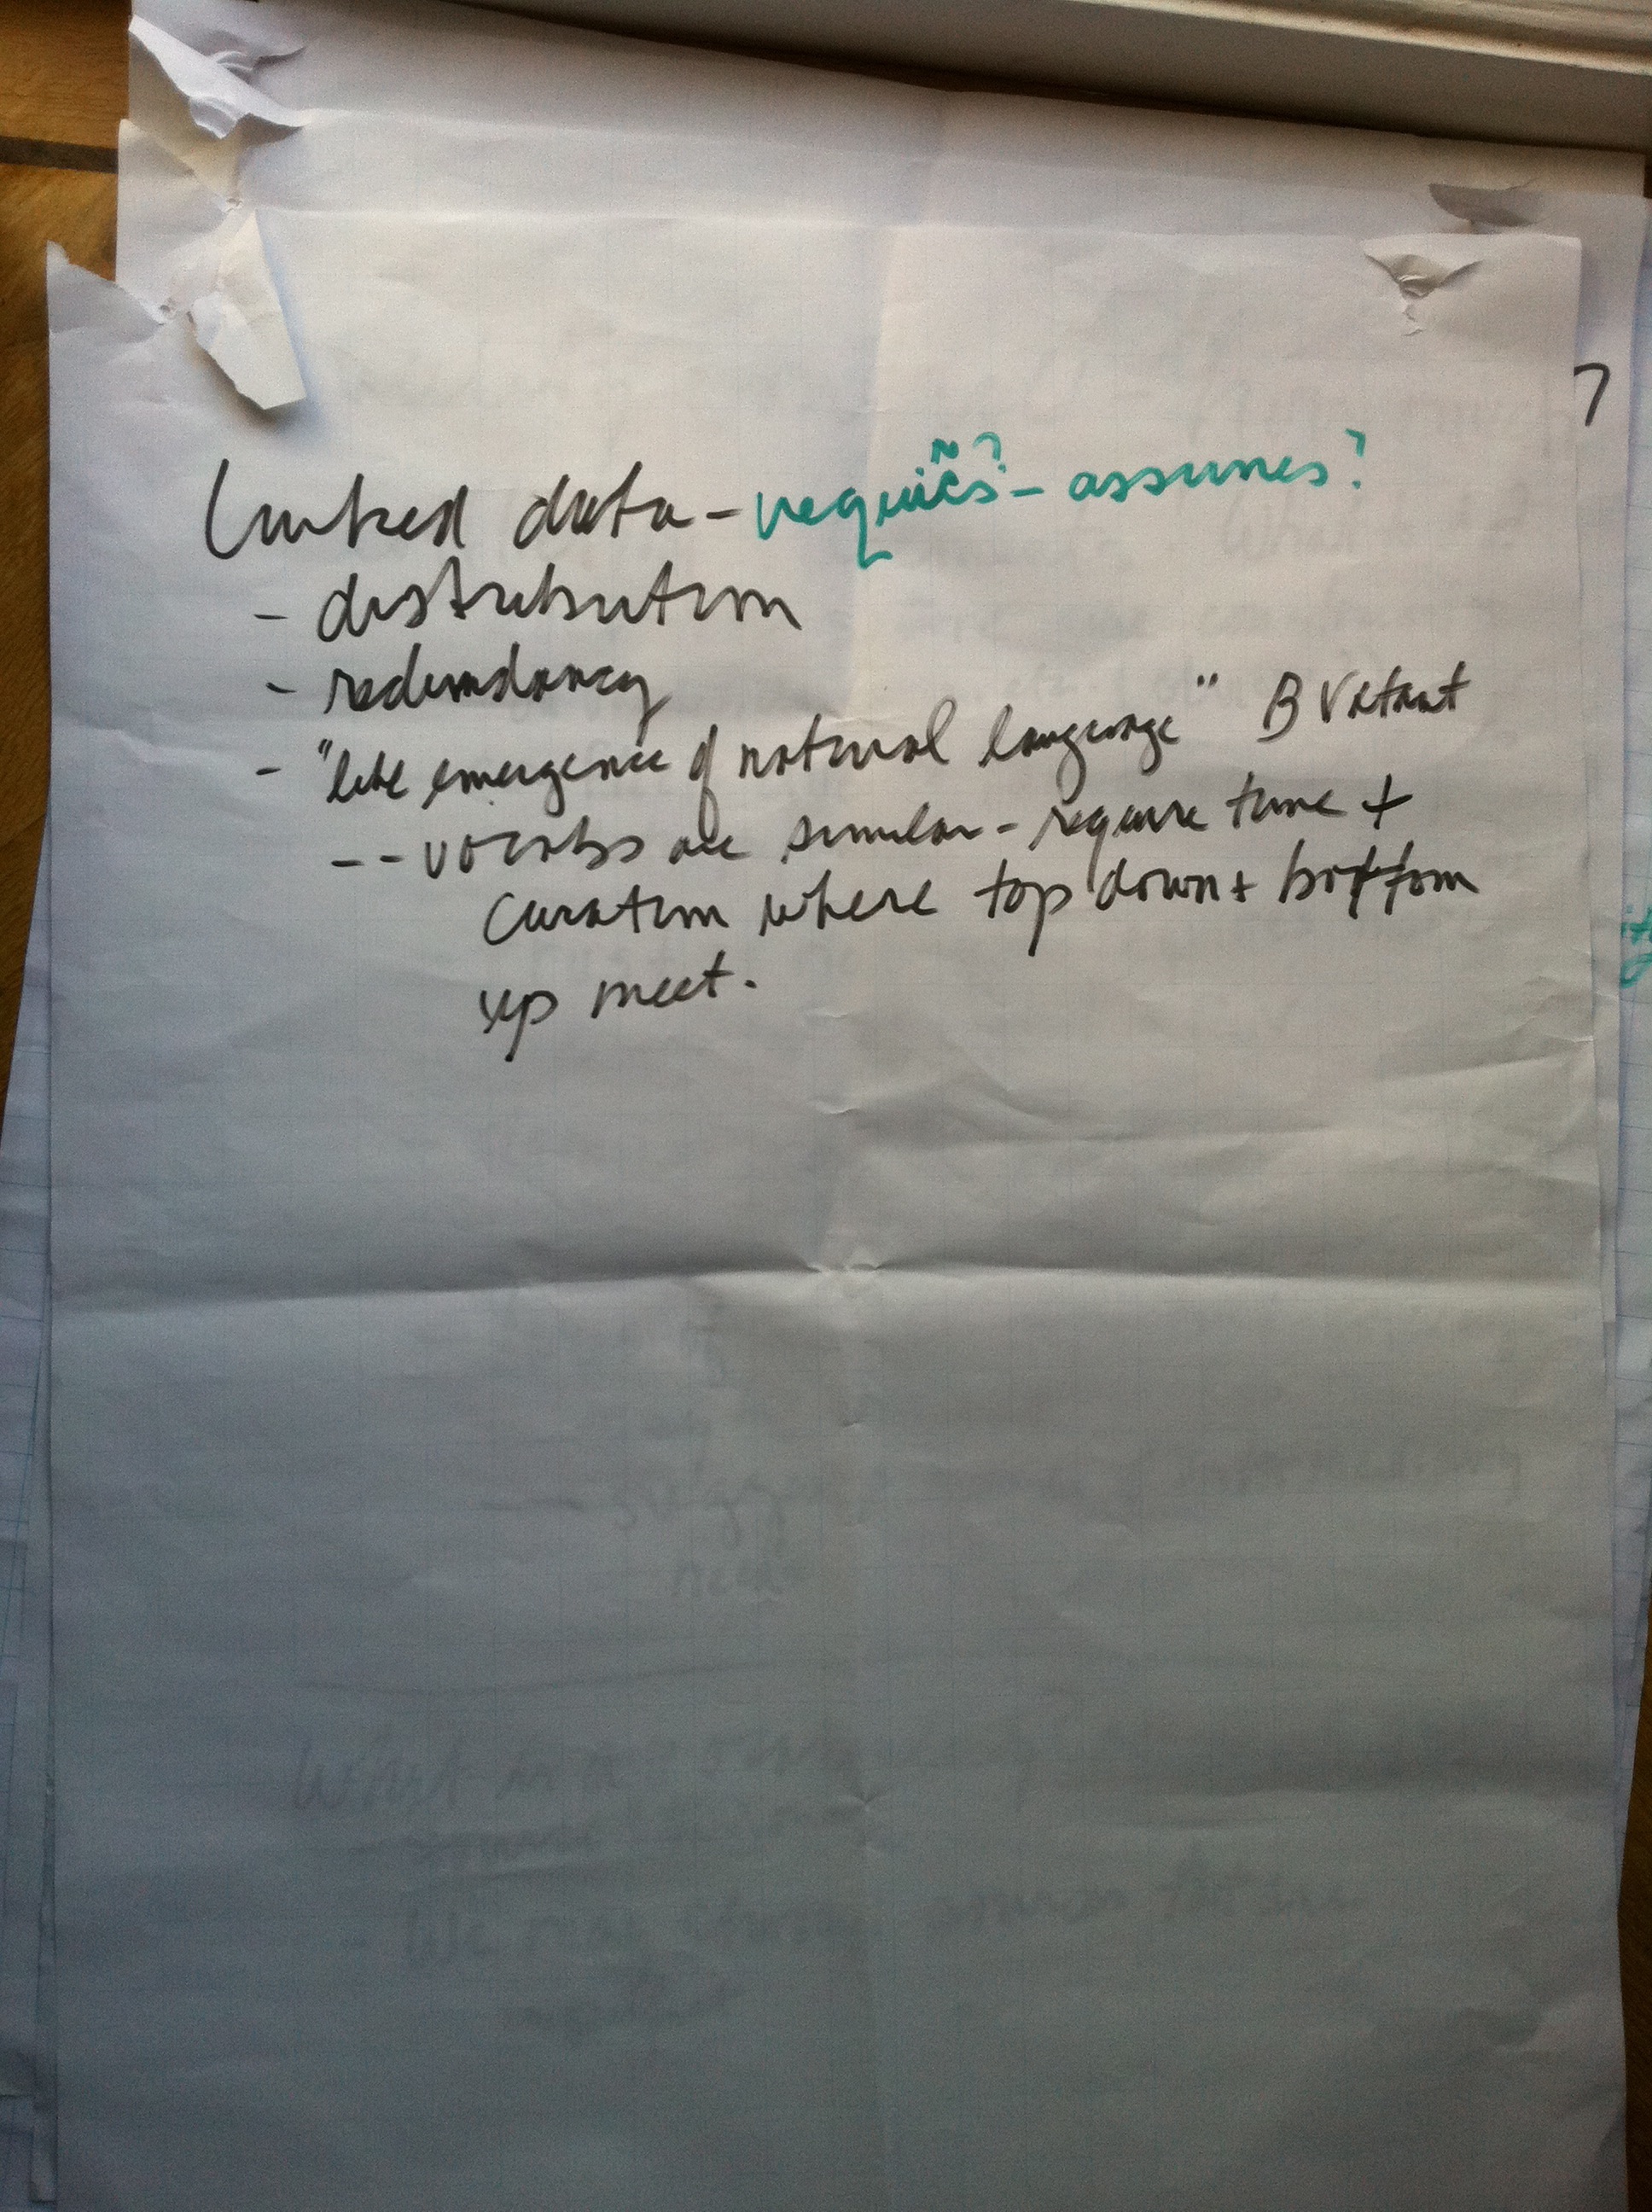 Linked data - requires? - assumes?
- distribution
- redundancy
- "like emergence of natural language" B Vatant
-- vocabs are similar - require time +
curation where top down + bottom
up meet.